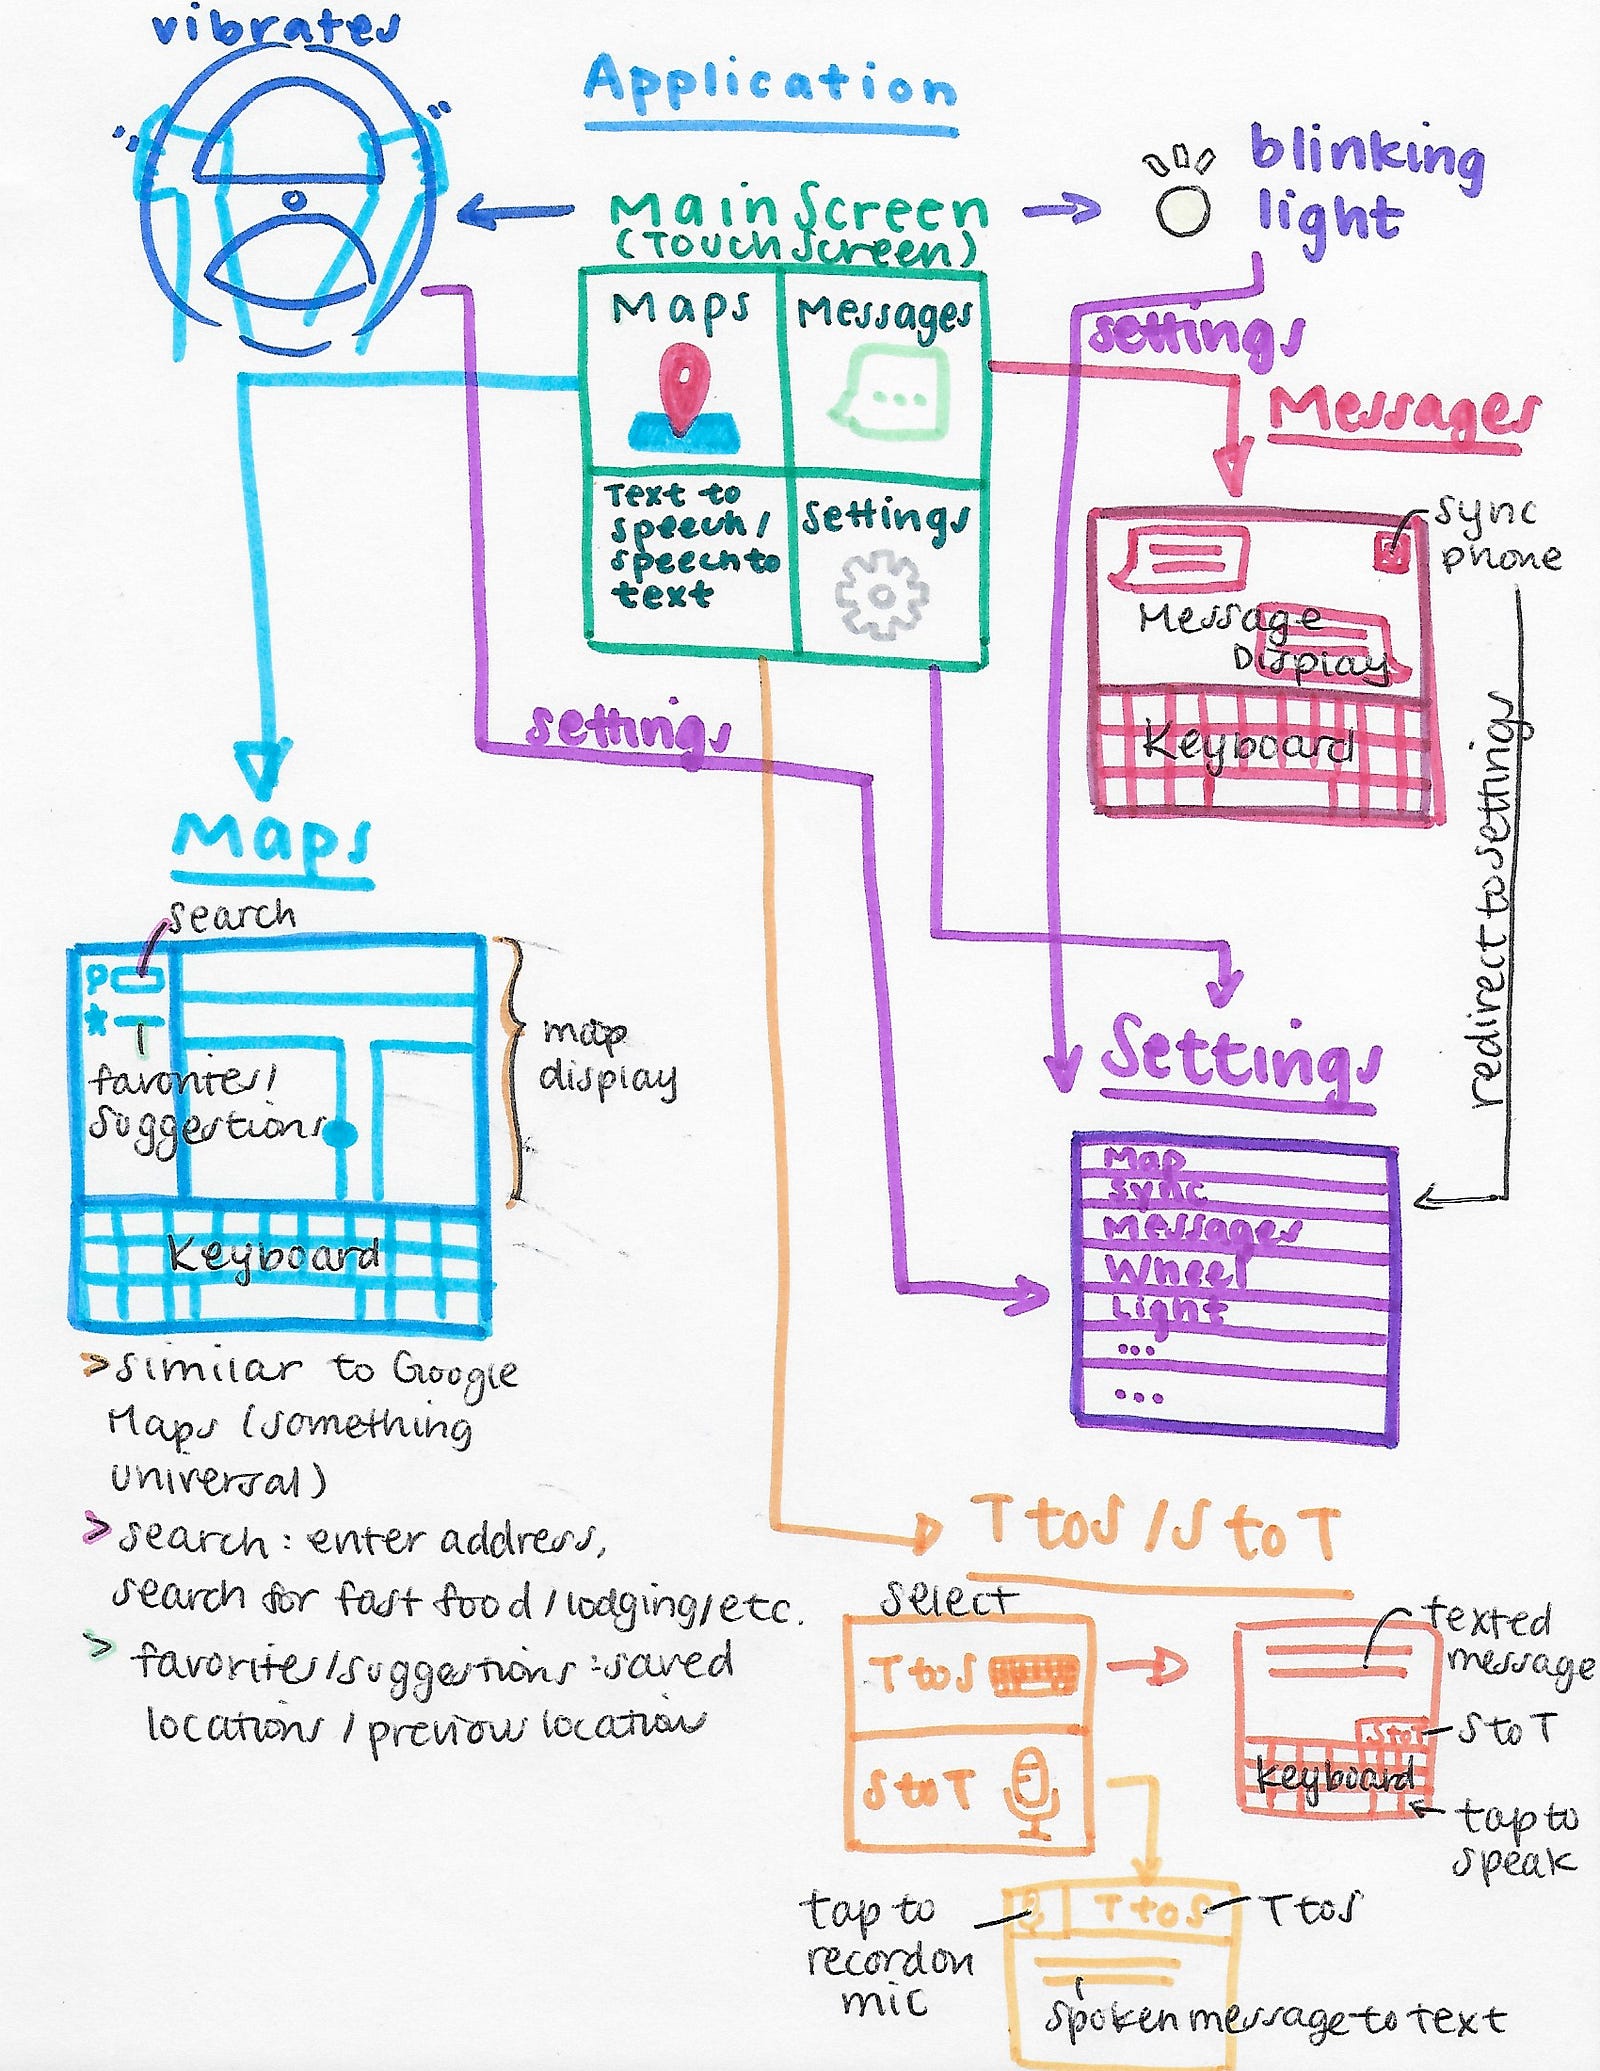 vibrates
Application
blinking
light
Main Screen
(Touch Screen)
Maps
Messages
Text to
speech/
speech to
text
Settings
settings
Messages
sync
phone
Message
Display
Keyboard
redirect to settings
settings
Maps
search
favorites/
suggestions
map
display
Keyboard
>similar to Google
Maps (something
universal)
>search: enter address,
search for fast food/lodging/etc.
> favorites/suggestions: saved
locations/previous location
Settings
Map
Sync
Messages
Wheel
Light
...
...
T to S / S to T
select
T to S
S to T
texted
message
S to T
S to T
Keyboard
tap to
speak
tap to
record on
mic
T to S
T to S
spoken message to text